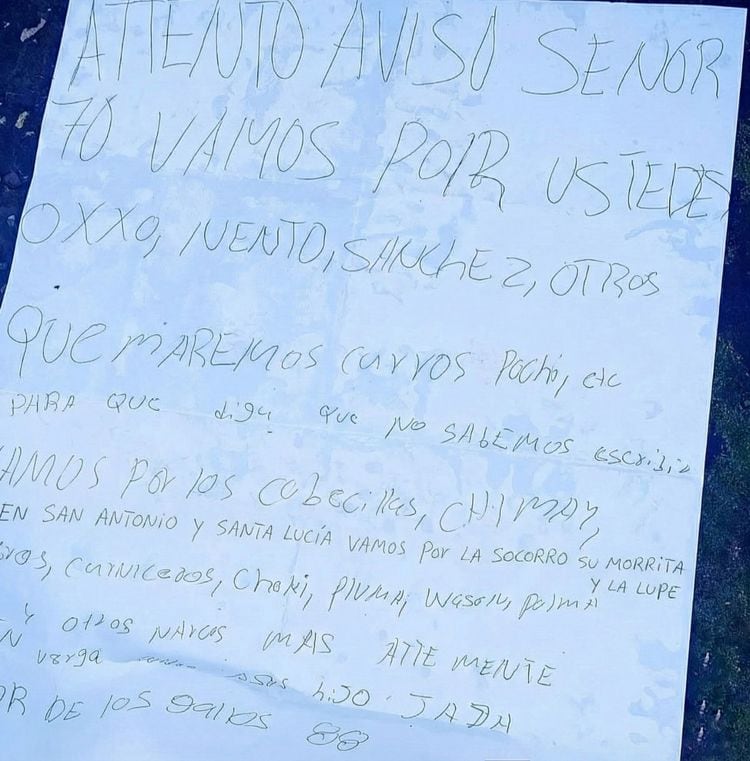 ATTENTO AVISO SENOR
70 VAMOS POR USTEDES
OXXO, NENTO, SANCHEZ, OTROS
QUEMAREMOS carros Pochi, etc
PARA QUE diga que NO SABEMOS escribir
VAMOS POR los cabecillas, CHIMAY,
EN SAN ANTONIO Y SANTA LUCÍA VAMOS POR LA SOCORRO SU MORRITA
Y LA LUPE
carniceros, Choki, PLUMA, Wason, palma
Y OTROS NARCOS MAS ATTE MENTE
verga hijo JADA
OR DE los gallos 88